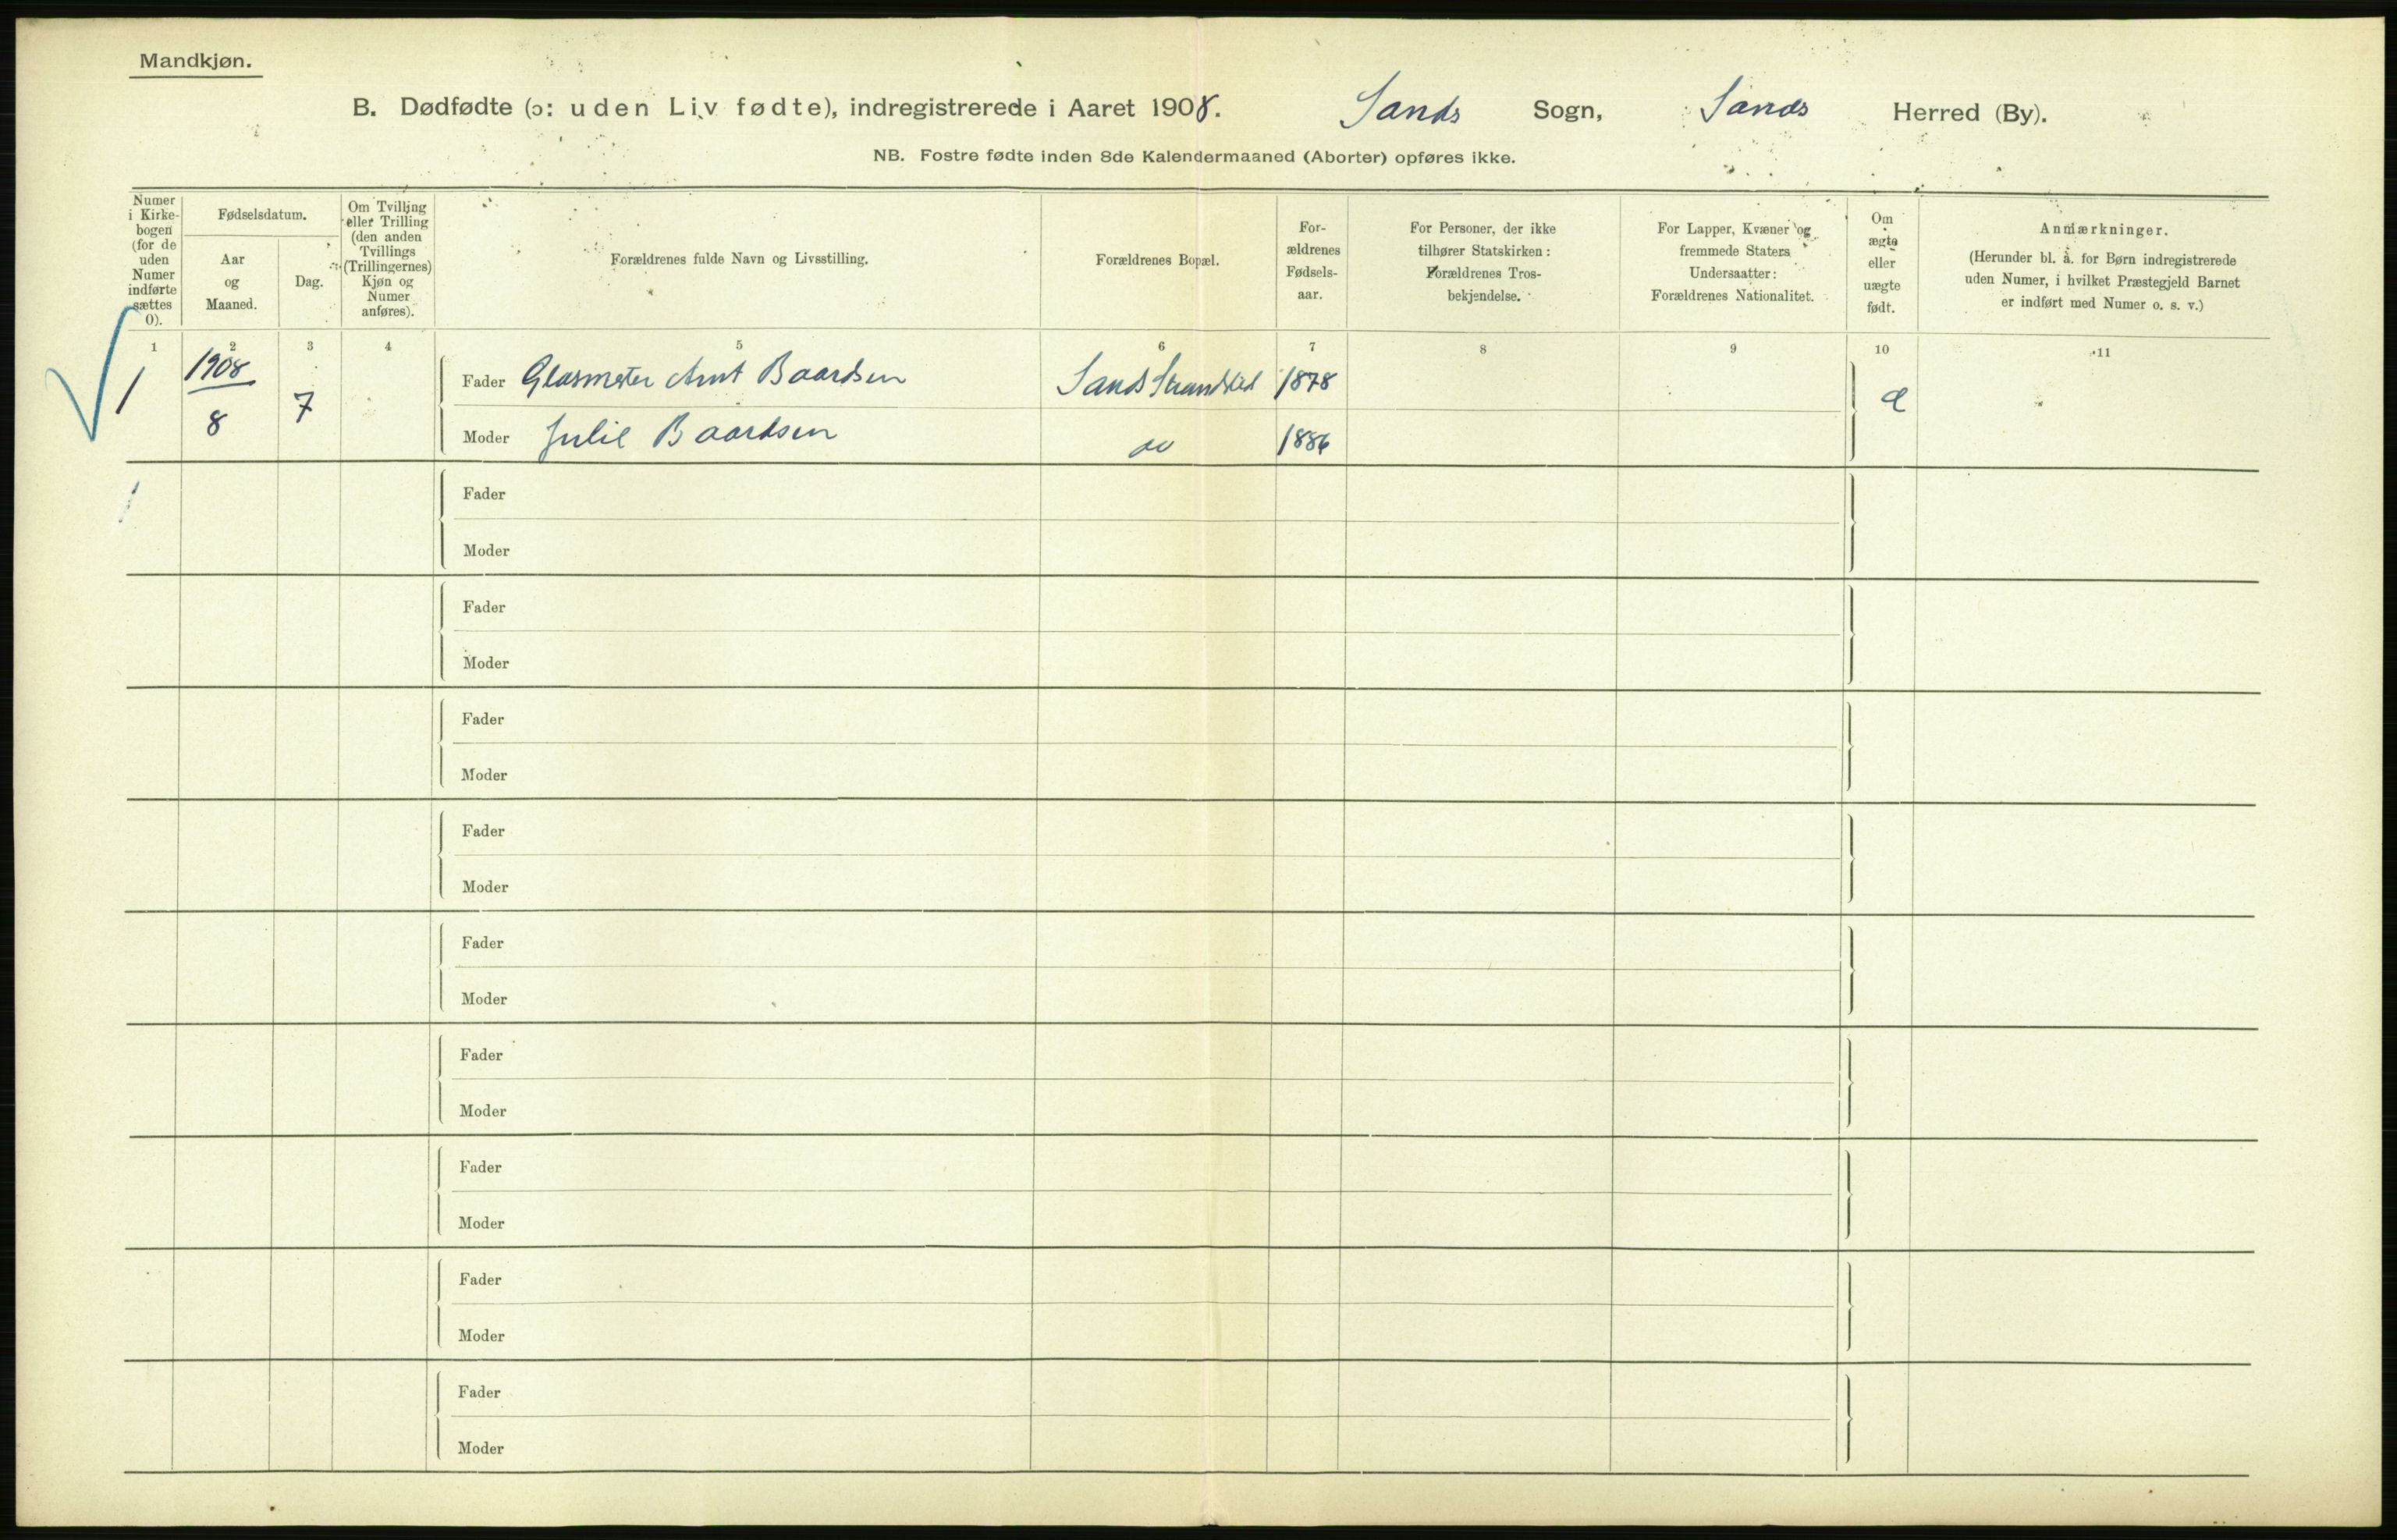 Mandkjøn.
B. Dødfødte (ɔ: uden Liv fødte), indregistrerede i Aaret 1908. Sands Sogn, Sands Herred (By).
NB. Fostre fødte inden 8de Kalendermaaned (Aborter) opføres ikke.
Numer
i Kirke-
bogen
(for de
uden
Numer
indførte
sættes
0).
Fødselsdatum.
Aar
og
Maaned.
Dag.
Om Tvilling
eller Trilling
(den anden
Tvillings
(Trillingernes)
Kjøn og
Numer
anføres).
Forældrenes fulde Navn og Livsstilling.
Forældrenes Bopæl.
For-
ældrenes
Fødsels-
aar.
For Personer, der ikke
tilhører Statskirken:
Forældrenes Tros-
bekjendelse.
For Lapper, Kvæner og
fremmede Staters
Undersaatter:
Forældrenes Nationalitet.
Om
ægte
eller
uægte
født.
Anmærkninger.
(Herunder bl. a. for Børn indregistrerede
uden Numer, i hvilket Præstegjeld Barnet
er indført med Numer o. s. v.)
1 2 3 4 5 6 7 8 9 10 11
1 1908 8 7
Fader Glasmester Arnt Baardsen Sands Strandsted 1878 Æ
Moder Julie Baardsen do 1886
Fader
Moder
Fader
Moder
Fader
Moder
Fader
Moder
Fader
Moder
Fader
Moder
Fader
Moder
Fader
Moder
Fader
Moder